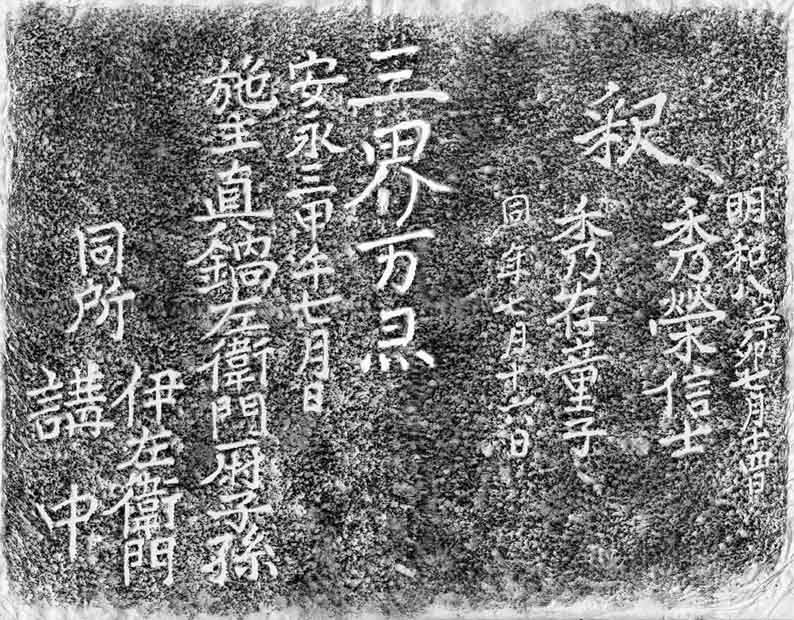 明和八辛卯七月十四日
釈
秀榮信士
秀存童子
同年七月十六日
三界万灵
安永三甲午七月日
施主真鍋左衛門尉子孫
同所
伊左衛門
講中